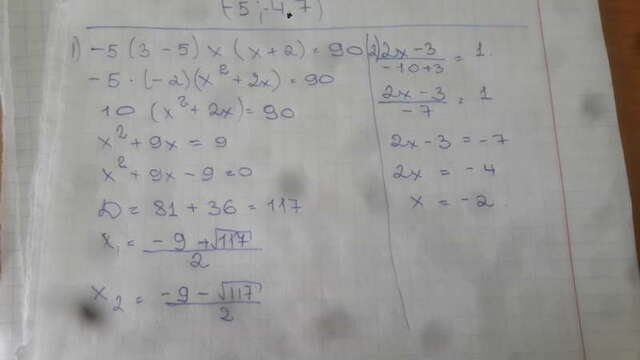 (-5; -4.7)
1) -5(3-5)x(x+2)=90
-5·(-2)(x²+2x)=90
10 (x²+2x)=90
x²+9x=9
x²+9x-9=0
D=81+36=117
x₁=(-9+√117)/2
x₂=(-9-√117)/2
2) (2x-3)/(-10+3)=1.
(2x-3)/(-7)=1
2x-3=-7
2x=-4
x=-2.